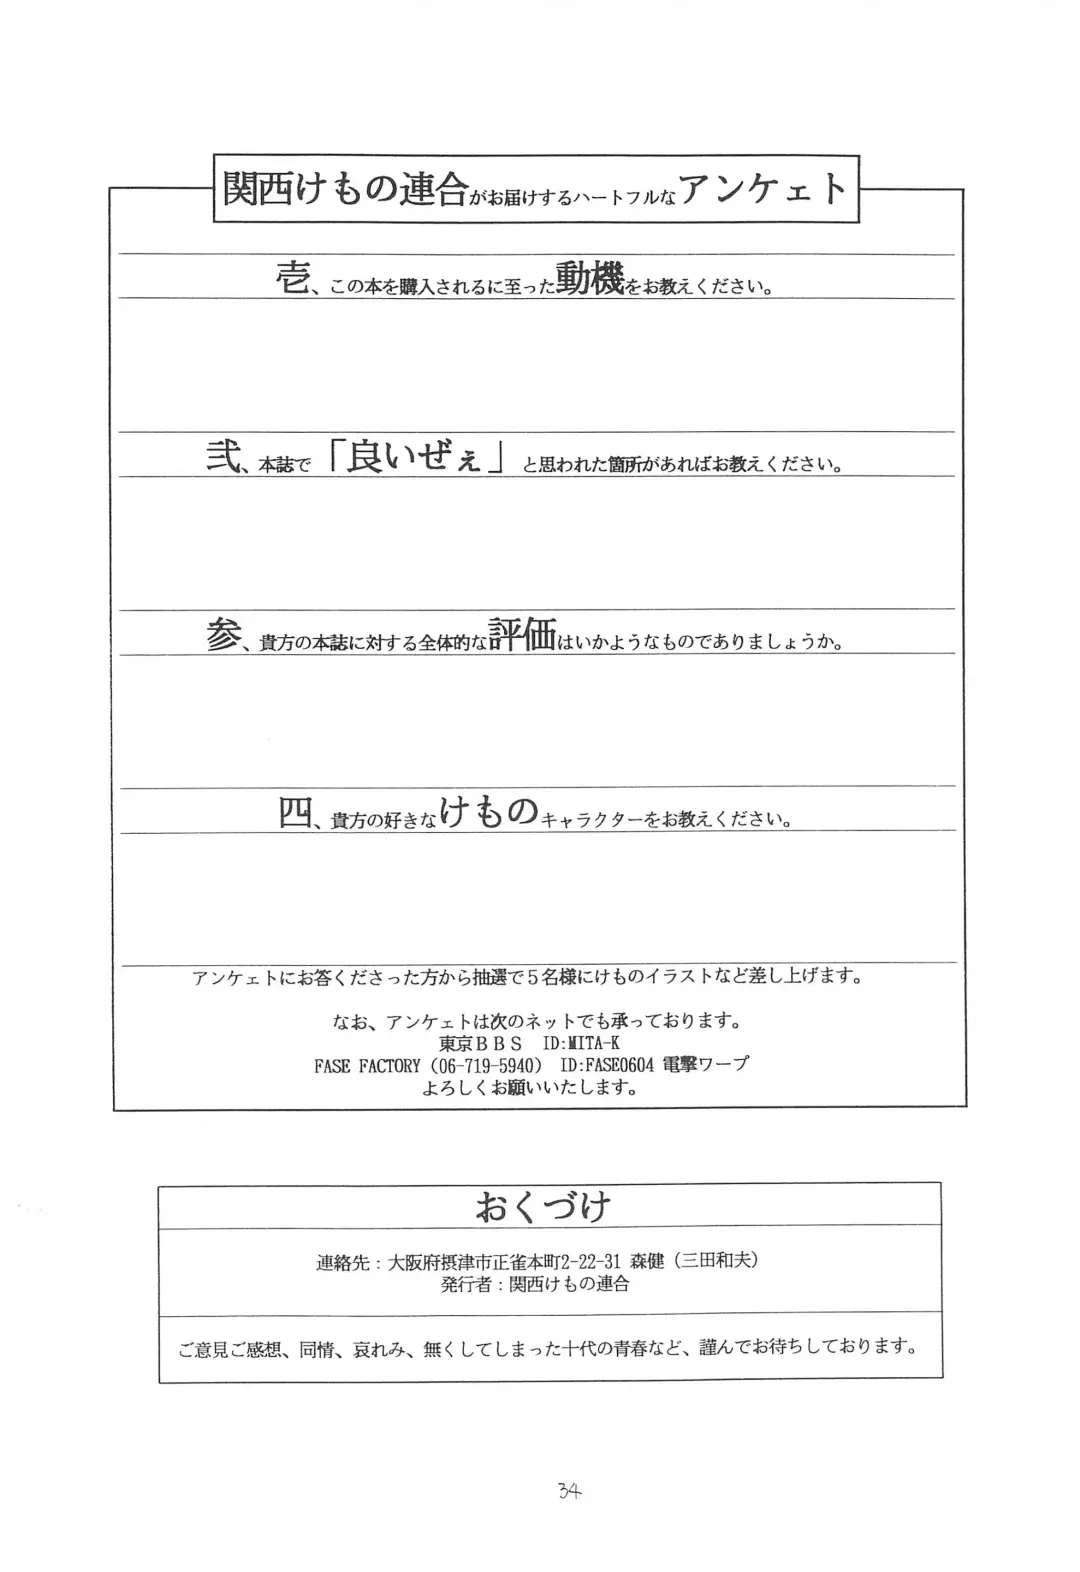 関西けもの連合がお届けするハートフルなアンケェト
壱、この本を購入されるに至った動機をお教えください。
弐、本誌で「良いぜぇ」と思われた箇所があればお教えください。
参、貴方の本誌に対する全体的な評価はいかようなものでありましょうか。
四、貴方の好きなけものキャラクターをお教えください。
アンケェトにお答くださった方から抽選で５名様にけものイラストなど差し上げます。
なお、アンケェトは次のネットでも承っております。
東京ＢＢＳ　ID:MITA-K
FASE FACTORY（06-719-5940）　ID:FASE0604 電撃ワープ
よろしくお願いいたします。
おくづけ
連絡先：大阪府摂津市正雀本町2-22-31 森健（三田和夫）
発行者：関西けもの連合
ご意見ご感想、同情、哀れみ、無くしてしまった十代の青春など、謹んでお待ちしております。
34